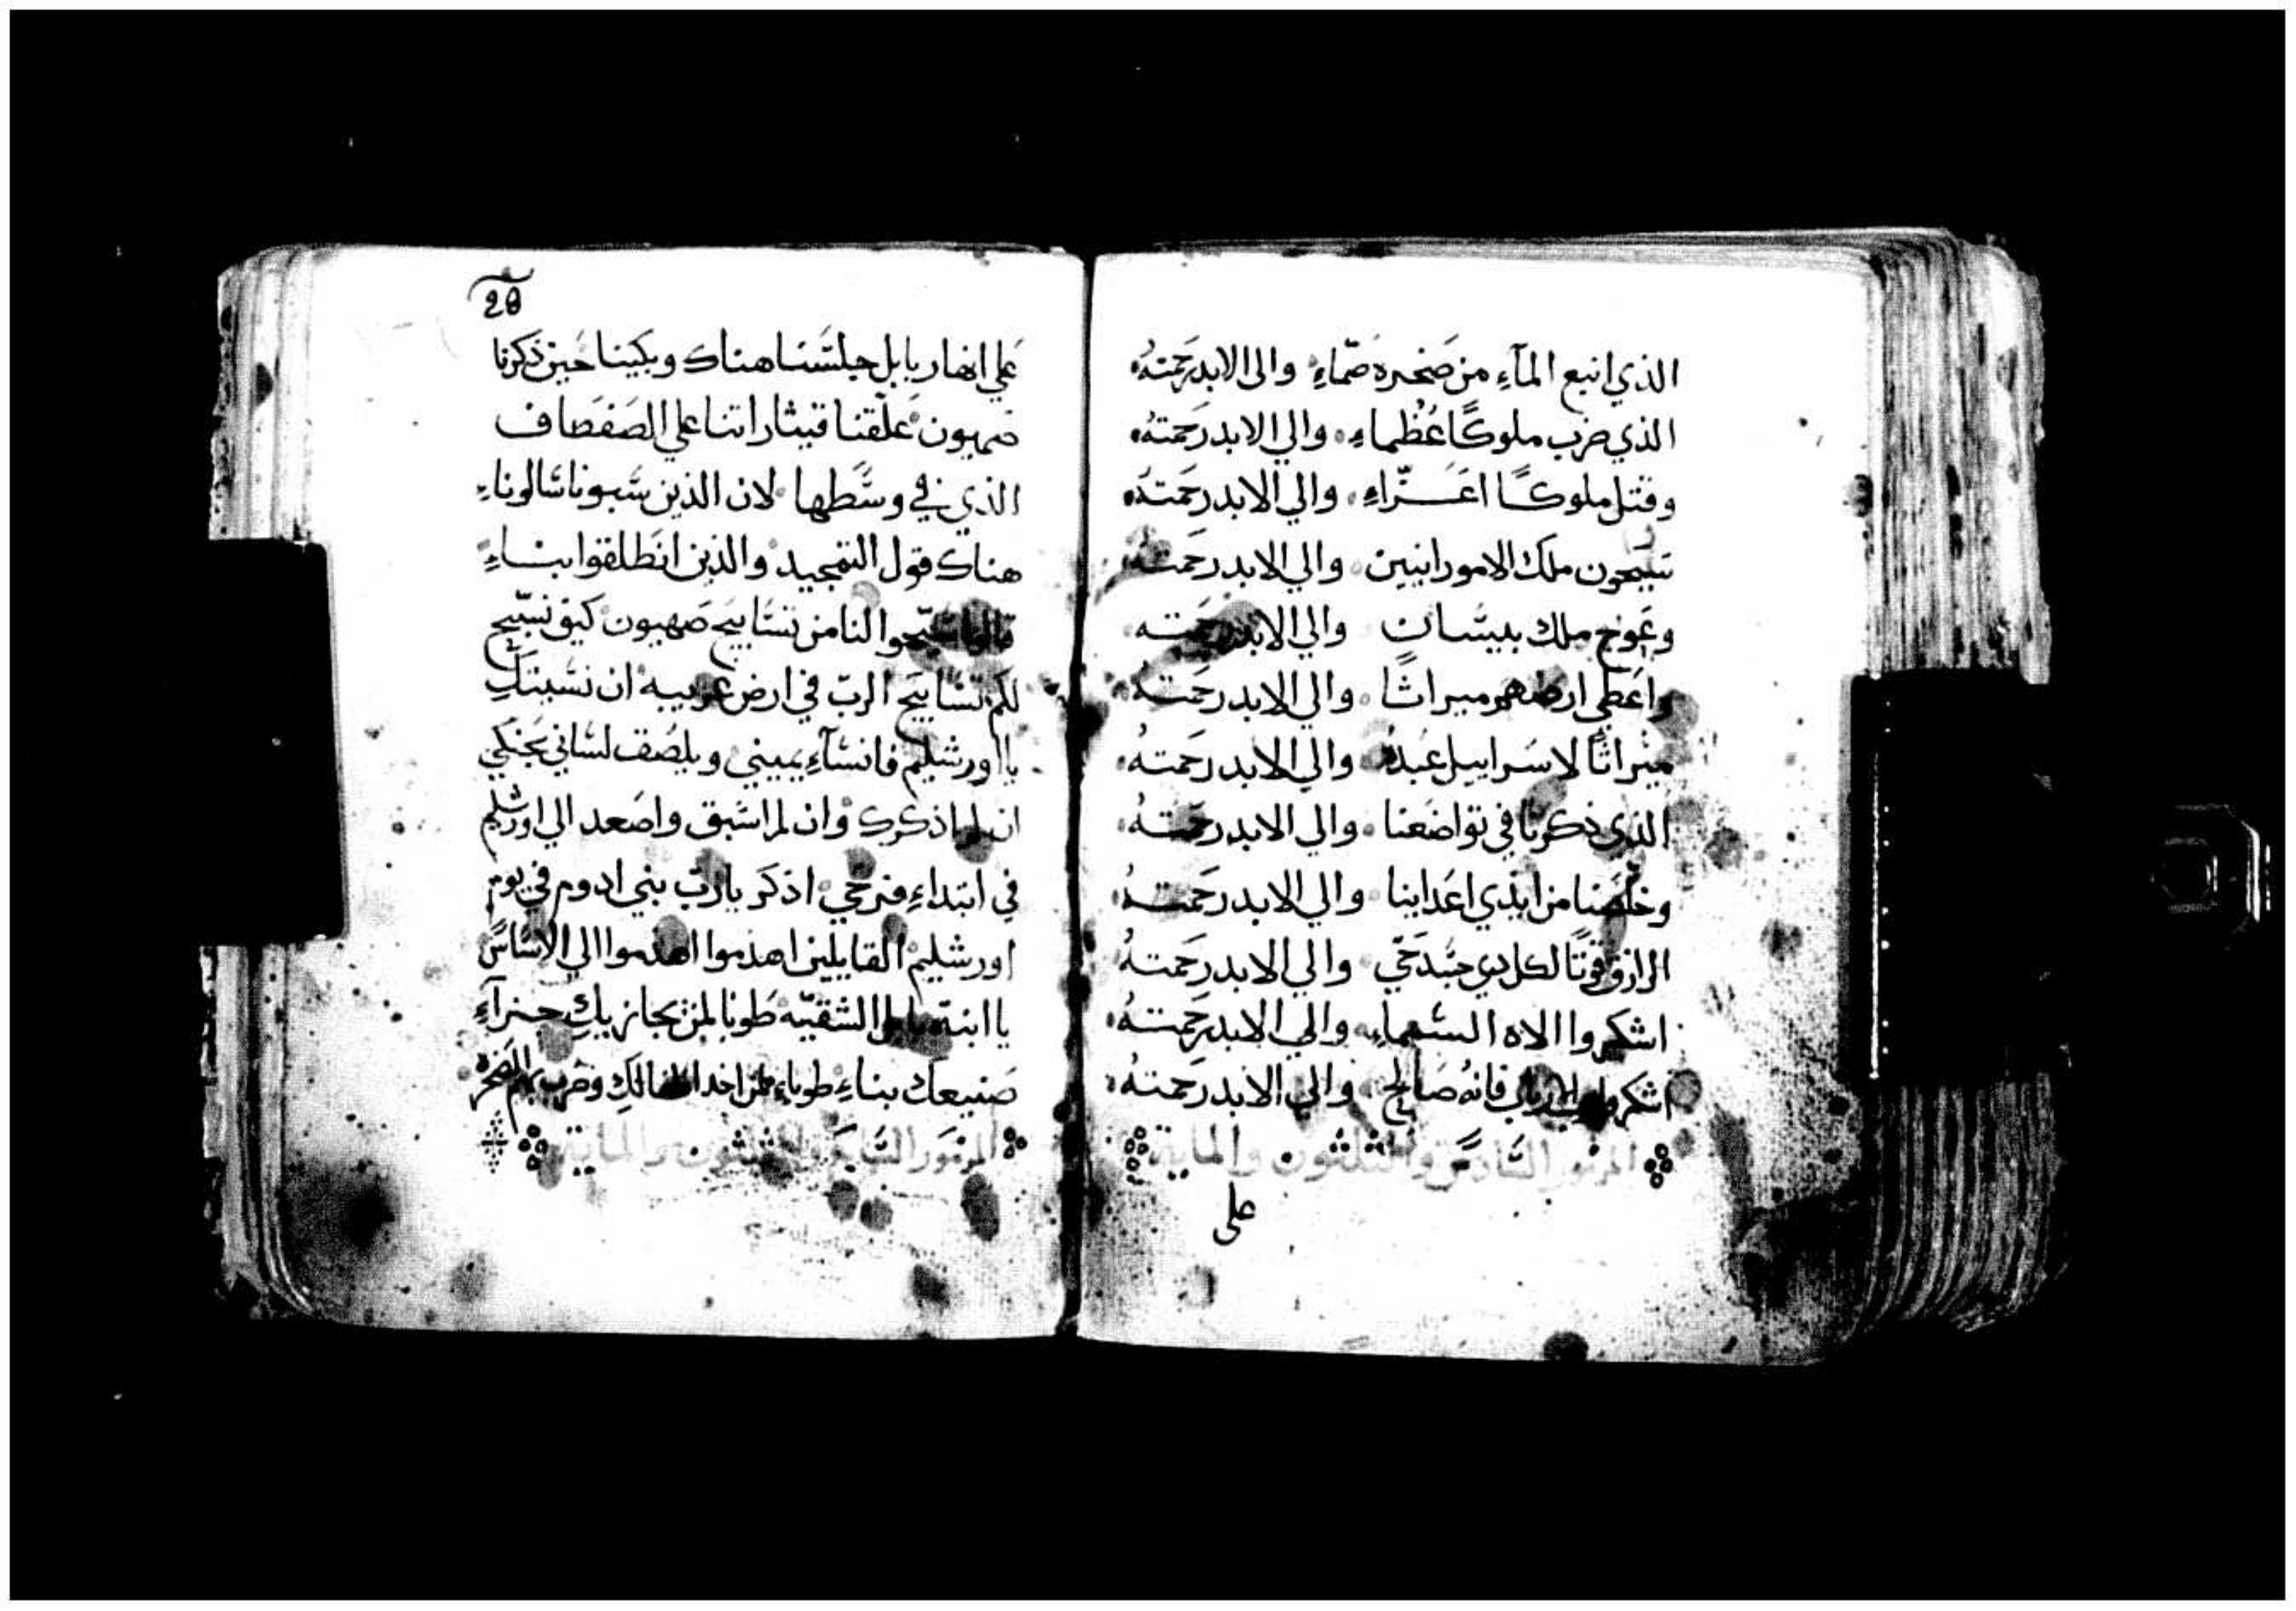 الذي انبع المآءِ من صَخره صَمّاءِ والى الابد رَحمتهُ
الذي ضرب ملوكًا عُظماءِ والي الابد رَحمتهُ
وقتل ملوكًا اعَزّاءِ والي الابد رحَمتهُ
سَيَحون ملك الامورانيين والي الابد رحمتهُ
وعَوج ملك بيسَان والي الابد رحَمته
واعَطي ارضهم ميراثًا والي الابد رحَمتهُ
ميْراثًا لاسَراييل عَبدهُ والي الابد رحَمتهُ
الذي ذكرنا في تواضَعنا والي الابد رحَمتهُ
وخلّصَنا من ايْدي اعَداينا والي الابد رحَمتهُ
الرازق قوتًا لكل دي جسَدحَي والي الابد رحَمتهُ
اشكروا الاه السَماءِ والي الابد رَحمتهُ
اشكروا رب الارباب فانهُ صَالح والي الابد رحمتهُ
المزمور السَادسَ والثلثون والمايه
على
20
عَلي انهار بابل جلسَنا هناك وبكَينا حَين ذكَرنا
صَهيون عَلّقنا قيثاراتنا علي الصَفصَاف
الذي في وسَطها لان الذين سَبونا سَالوناءِ
هناك قول التمجيد والذين انطلقوا بناءِ
قالوا سَبّحوا لنا من تسَابيح صَهيون كَيف نسَبّح
لكَم تسَابيح الربّ في ارض غريبه ان نسَيتكِ
يا اورشليم فانسَآءِ يميني ويلصَق لسَاني بحَنكي
ان لم اذكرك وان لم اسَبق واصَعد الي اورشليم
في ابتداءِ فرحَي اذكَر ياربّ بني ادوم في يوم
اورشليم القايلين اهدموا اهدموا الي الاسَاسَ
يا ابنة بابل الشقيّه طوبا لمن يجازيكِ جزآءِ
صَنيعك بناءِ طوباءِ لمن اخد اطفالكِ وضرب بهم الصَخره
المزمور السَابع والثلثون والمايه